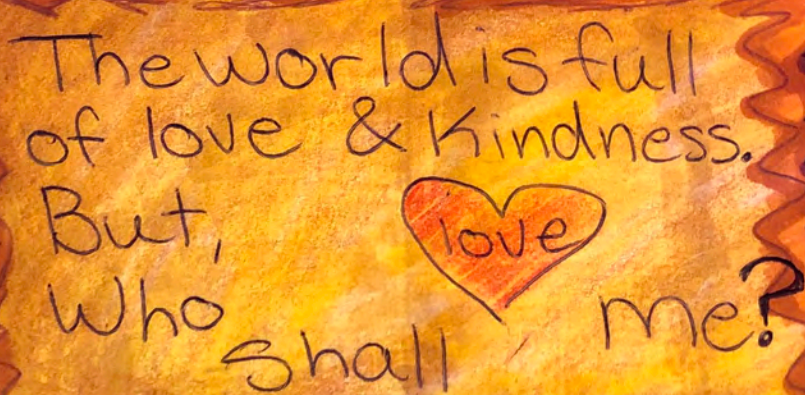 The world is full
of love & Kindness.
But,
Who
shall
love
me?